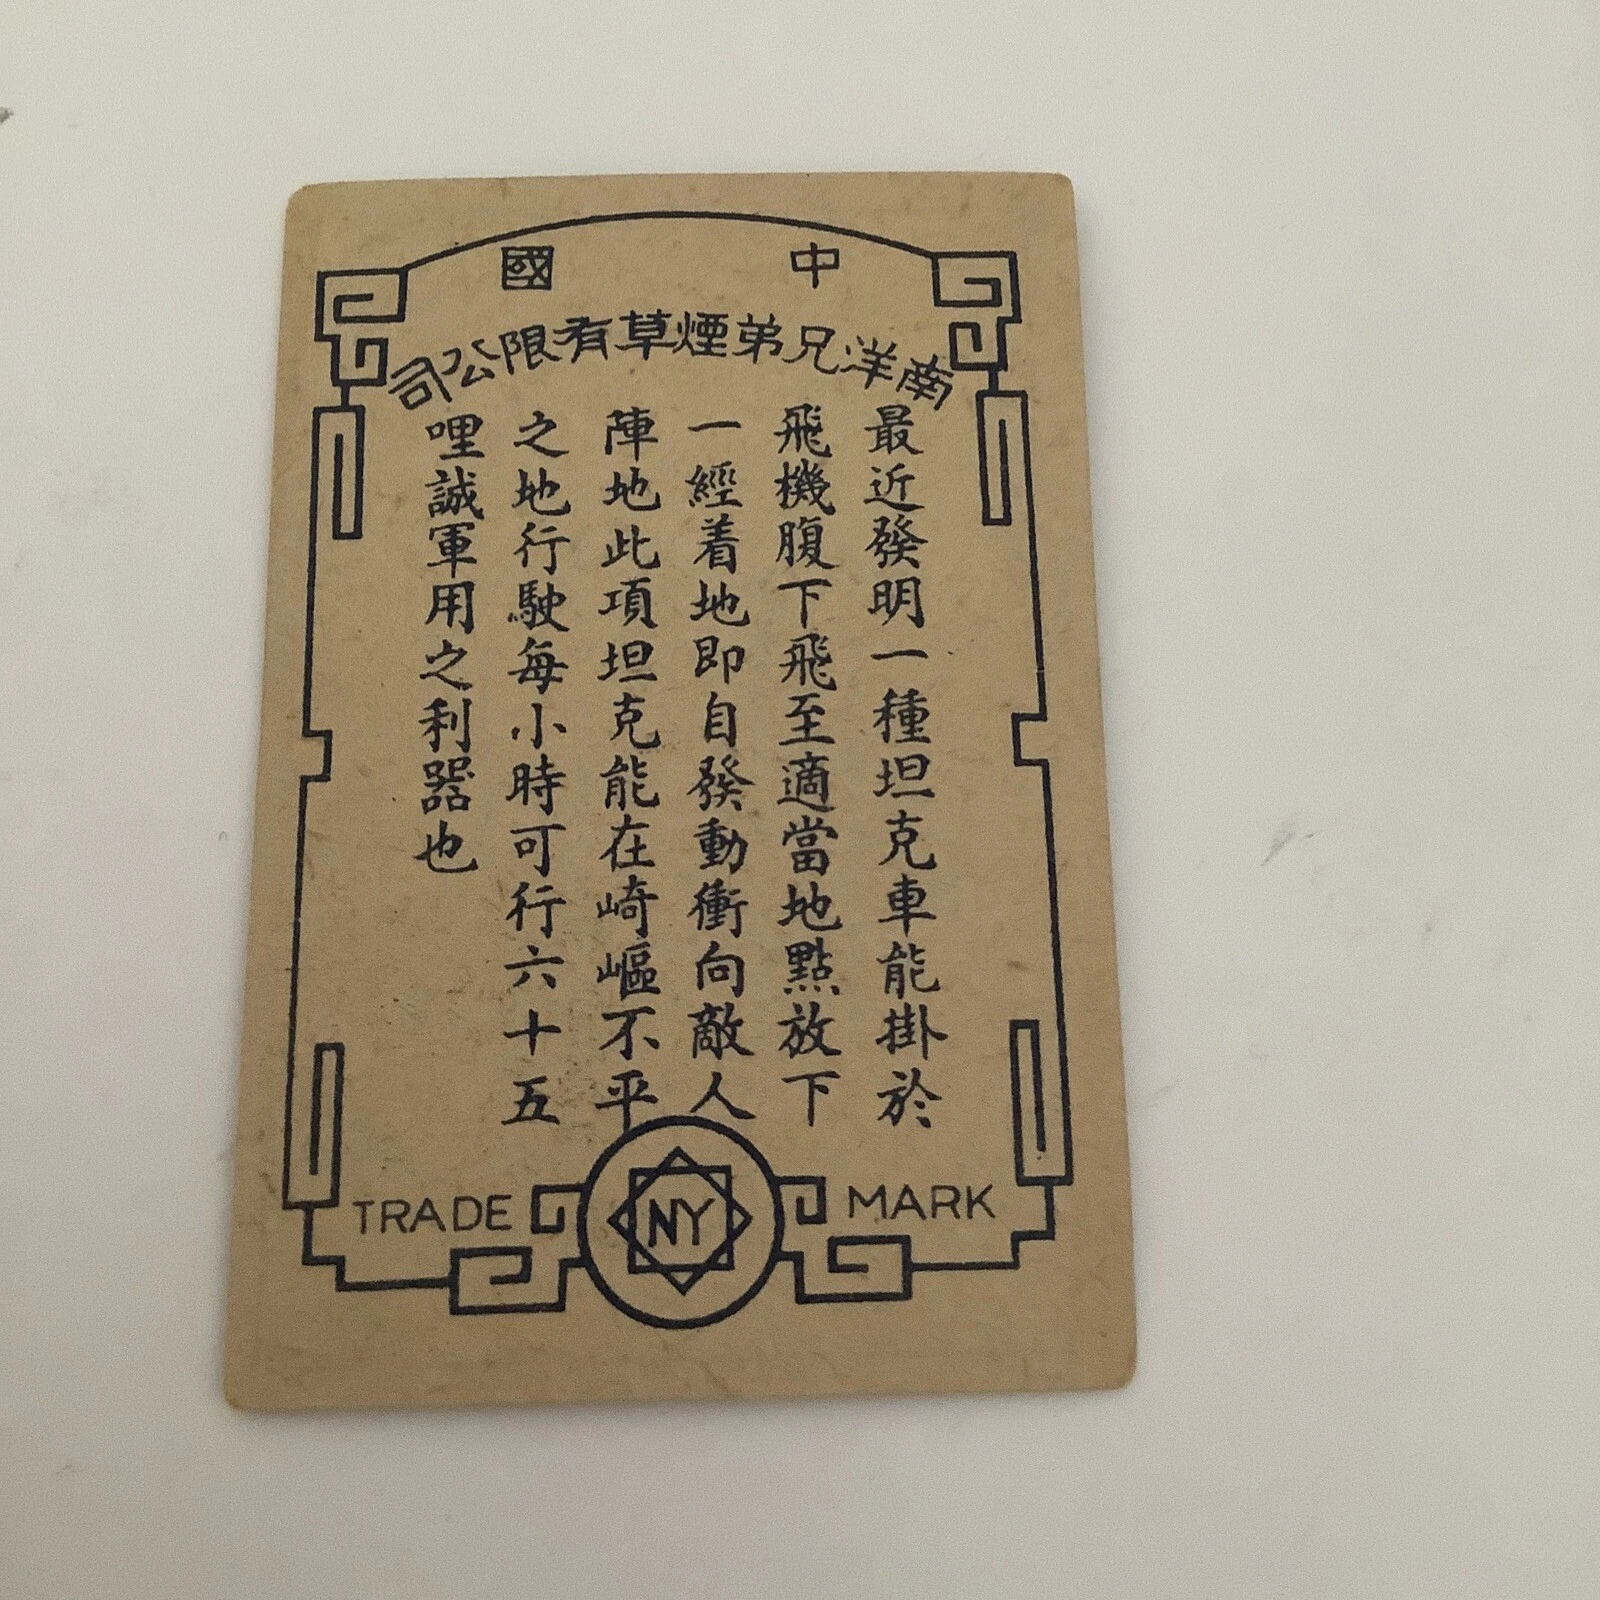 中國
南洋兄弟煙草有限公司
最近發明一種坦克車能掛於
飛機腹下飛至適當地點放下
一經着地即自發動衝向敵人
陣地此項坦克能在崎嶇不平
之地行駛每小時可行六十五
哩誠軍用之利器也
TRADE NY MARK